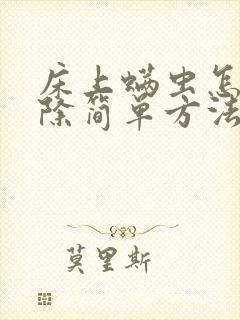 床上螨虫怎
除简单方法
莫里斯